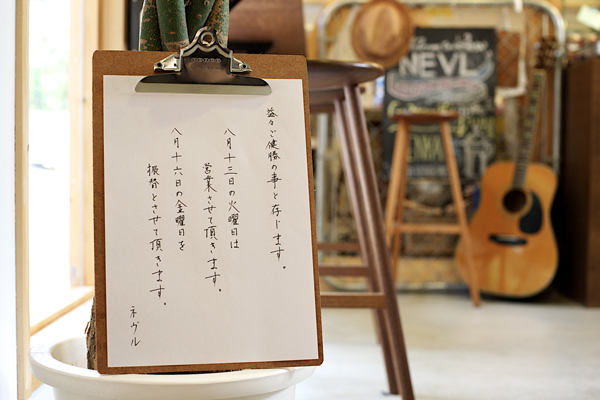 益々ご健勝の事と存じます。
八月十三日の火曜日は
営業させて頂きます。
八月十六日の金曜日を
振替とさせて頂きます。
ネヴル
NEVL